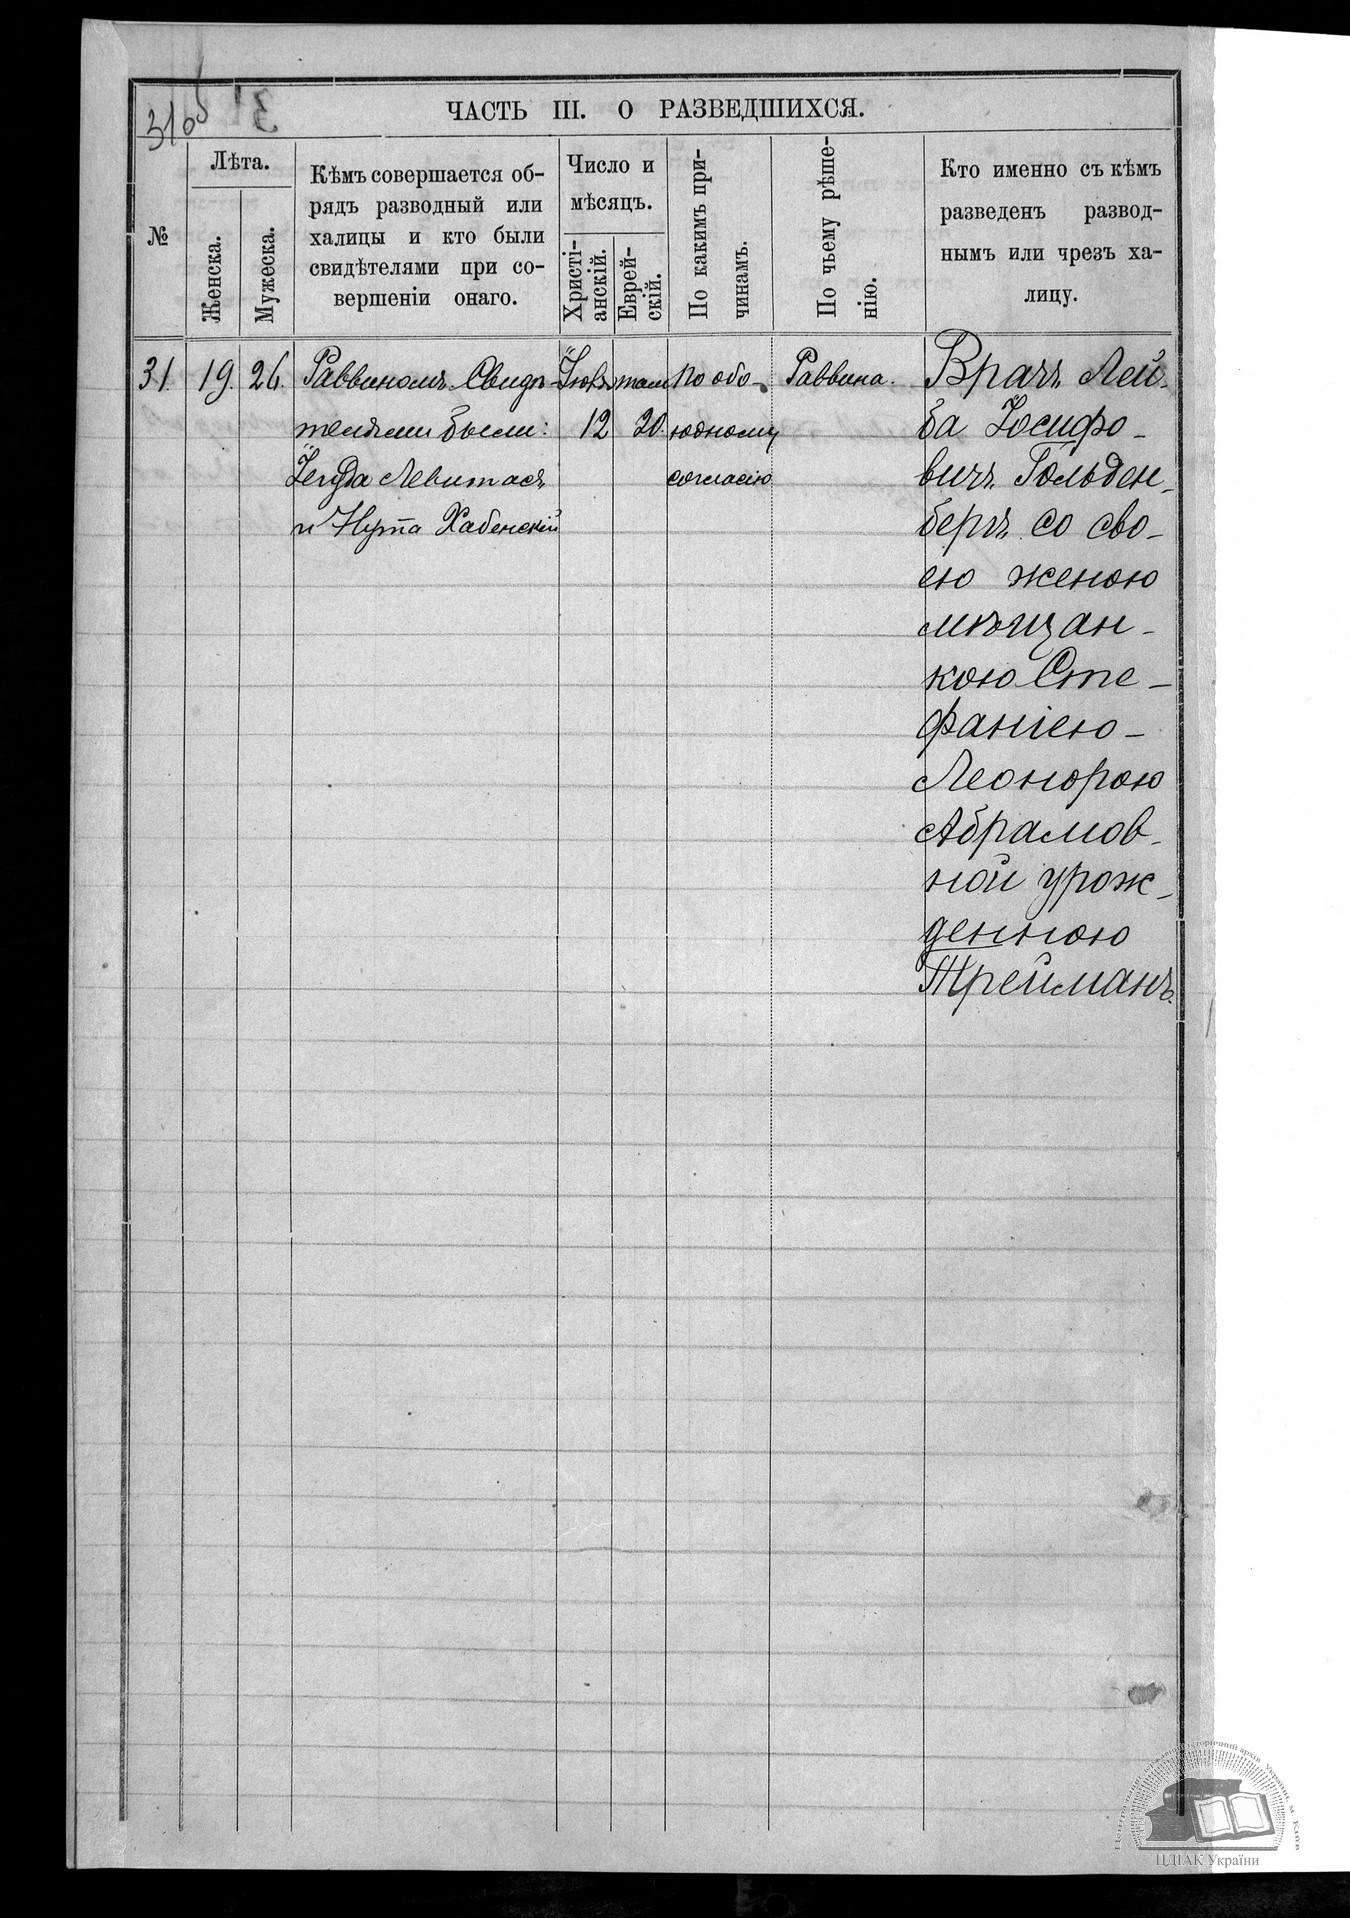 ЧАСТЬ III. О РАЗВЕДШИХСЯ.
№
Лѣта.
Женска.
Мужеска.
Кѣмъ совершается об-
рядъ разводный или
халицы и кто были
свидѣтелями при со-
вершеніи онаго.
Число и
мѣсяцъ.
Христі-
анскій.
Еврей-
скій.
По какимъ при-
чинамъ.
По чьему рѣше-
нію.
Кто именно съ кѣмъ
разведенъ развод-
нымъ или чрезъ ха-
лицу.
31. 19. 26.
Раввиномъ. Свидѣ-
телями были:
Іегуда Левитасъ
и Нута Хабенскій
12
20
По обо-
юдному
согласію
Раввина.
Врачъ Лей-
ба Іосифо-
вичъ Гольден-
бергъ со сво-
ею женою
мѣщан-
кою Сте-
фаніею-
Леонорою
Абрамов-
ной урож-
денною
Трейманъ.
ЦДІАК України